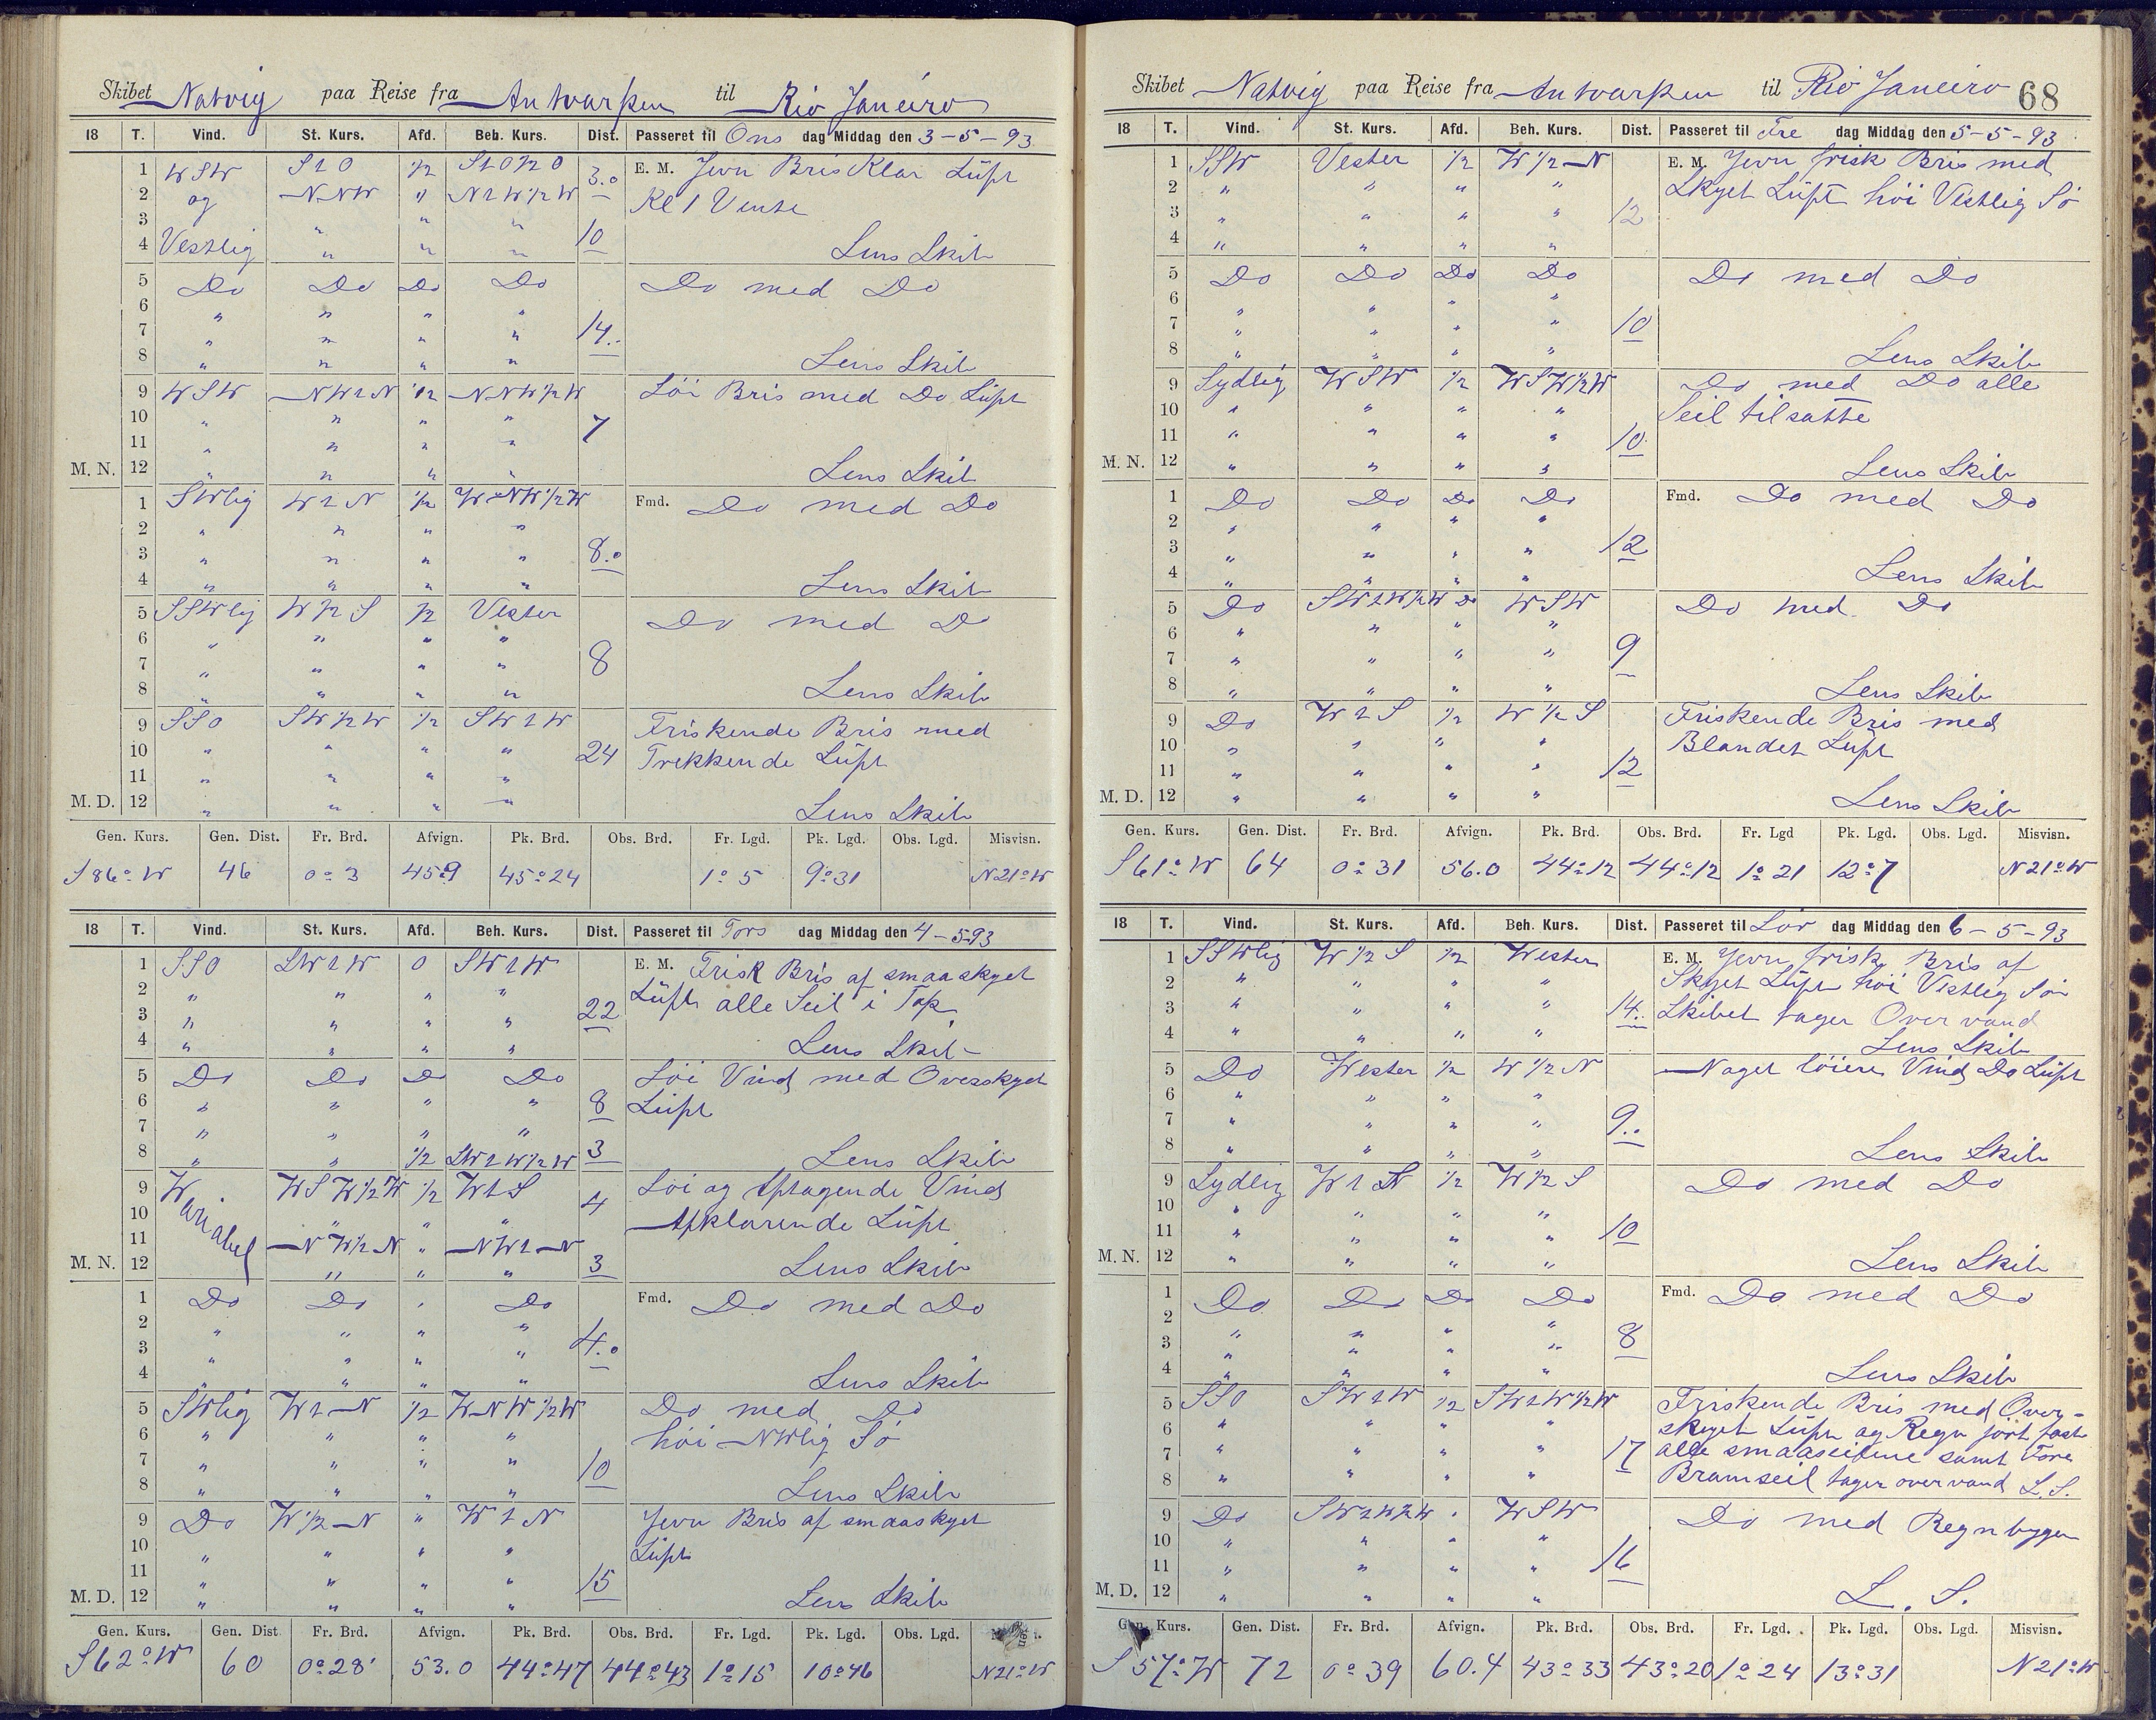 Skibet Natvig paa Reise fra Antvarpen til Rio Janeiro
18 T. Vind. St. Kurs. Afd. Beh. Kurs. Dist. Passeret til Ons dag Middag den 3-5-93
1 WSW S1O 1/2 S1O1/2O 3.0 E. M. Jevn Bris Klar Lüft
2 og NNW " N1W1/2W Kl 1 Vente
3 " " " 10
4 Vestlig " " " Lens Skib
5 Do Do Do Do Do med Do
6 " " " "
7 " " " " 14..
8 " " " " Lens Skib
9 WSW NW1N 1/2 NNW1/2W Löi Bris med Do Lüft
10 " " " " 7
11 " " " "
M. N. 12 " " " " Lens Skib
1 SWlig W1N 1/2 WNW1/2W Fmd. Do med Do
2 " " " "
3 " " " " 8.0
4 " " " " Lens Skib
5 SSWlig W1/2S 1/2 Vester Do med Do
6 " " " "
7 " " " " 8
8 " " " " Lens Skib
9 SSO SW1/2W 1/2 SW1W Friskende Bris med
10 " " " " 24 Trekkende Lüft
11 " " " "
M. D. 12 " " " " Lens Skib
Gen. Kurs. Gen. Dist. Fr. Brd. Afvign. Pk. Brd. Obs. Brd. Fr. Lgd. Pk. Lgd. Obs. Lgd. Misvisn.
S86°W 46 0°3 45.9 45°24 1°5 9°31 N21°W
18 T. Vind. St. Kurs. Afd. Beh. Kurs. Dist. Passeret til Tors dag Middag den 4-5-93
1 SSO SW1W 0 SW1W E. M. Frisk Bris af smaaskyet
2 " " " " Lüft alle Seil i Top
3 " " " " 22
4 " " " " Lens Skib
5 Do Do Do Do Löi Vind med Overskyet
6 " " " " 8 Lüft
7 " " " "
8 " " 1/2 SW1W1/2W 3 Lens Skib
9 Wariabel WSW1/2W 1/2 W1S 4 Löi og Aftagende Vind
10 " " " Afklarende Lüft
11 NW1/2N " NW1N
M. N. 12 " " " 3 Lens Skib
1 Do Do " Do Fmd. Do med Do
2 " " " "
3 " " " " 4.0
4 " " " " Lens Skib
5 SWlig W1N 1/2 WNW1/2W Do med Do
6 " " " " höi NWlig Sö
7 " " " " 10
8 " " " " Lens Skib
9 Do W1/2N " W1N Jevn Bris af smaaskyet
10 " " " " Lüft
11 " " " " 15
M. D. 12 " " " " Lens Skib
Gen. Kurs. Gen. Dist Fr. Brd. Afvign. Pk. Brd. Obs. Brd. Fr. Lgd. Pk. Lgd. Obs. Lgd.
S62°W 60 0°28' 53.0 44°47 44°43 1°15 10°46 N21°W
Skibet Natvig paa Reise fra Antvarpen til Rio Janeiro 68
18 T. Vind. St. Kurs. Afd. Beh. Kurs. Dist. Passeret til Fre dag Middag den 5-5-93
1 SSW Vester 1/2 W1/2N E. M. Jevn frisk Bris med
2 " " " " Skyet Lüft höi Vestlig Sö
3 " " " " 12
4 " " " "
5 Do Do Do Do Do med Do
6 " " " "
7 " " " " 10
8 " " " " Lens Skib
9 Sydlig WSW 1/2 WSW1/2W Do med Do alle
10 " " " " Seil tilsatte
11 " " " " 10
M. N. 12 " " " " Lens Skib
1 Do Do Do Do Fmd. Do med Do
2 " " " "
3 " " " " 12
4 " " " " Lens Skib
5 Do SW1W1/2W Do WSW Do med Do
6 " " " "
7 " " " " 9
8 " " " " Lens Skib
9 Do W1S 1/2 W1/2S Friskende Bris med
10 " " " " Blandet Lüft
11 " " " " 12
M. D. 12 " " " " Lens Skib
Gen. Kurs. Gen. Dist. Fr. Brd. Afvign. Pk. Brd. Obs. Brd. Fr. Lgd Pk. Lgd. Obs. Lgd. Misvisn.
S61°W 64 0°31 56.0 44°12 44°12 1°21 12°7 N21°W
18 T. Vind. St. Kurs. Afd. Beh. Kurs. Dist. Passeret til Lör dag Middag den 6-5-93
1 SSWlig W1/2S 1/2 Wester E. M. Jevn frisk Bris af
2 " " " " Skyet Lüft höi Vestlig Sö
3 " " " " 14.. Skibet tager Over vand
4 " " " " Lens Skib
5 Do Wester 1/2 W1/2N Noget löiere Vind Do Lüft
6 " " " "
7 " " " " 9..
8 " " " " Lens Skib
9 Sydlig W1S 1/2 W1/2S Do med Do
10 " " " "
11 " " " " 10
M. N. 12 " " " " Lens Skib
1 Do Do Do Do Fmd. Do med Do
2 " " " "
3 " " " " 8
4 " " " " Lens Skib
5 SSO SW1W 1/2 SW1W1/2W Friskende Bris med Over-
6 " " " " skyet Lüft og Regn jört fast
7 " " " " 17 alle smaaseilene samt Fore
8 " " " " Bramseil tager over vand L. S.
9 Do SW1W1/2W " WSW Do med Regnbyger
10 " " " "
11 " " " " 16
M. D. 12 " " " " L. S.
Gen. Kurs. Gen. Dist. Fr. Brd. Afvign. Pk. Brd. Obs. Brd. Fr. Lgd. Pk. Lgd. Obs. Lgd. Misvisn.
S57°W 72 0°39 60.4 43°33 43°20 1°24 13°31 N21°W